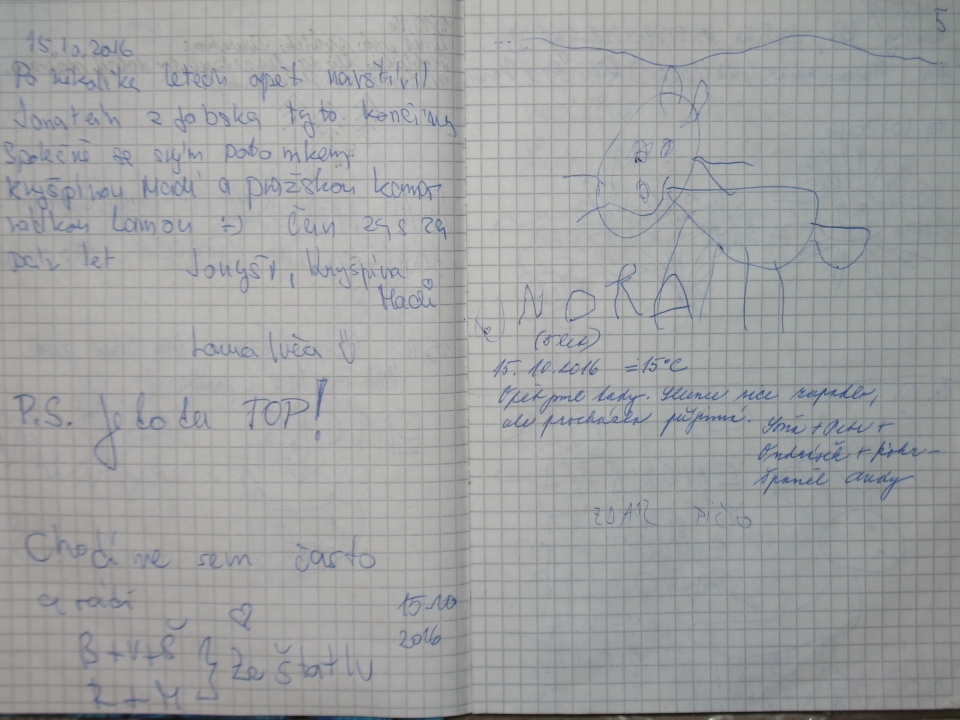 15.10.2016
Po několika letech opět navštívil
Jonatán z Jobska tyto končiny
Společně se svým potomkem
Kryšpínou Hadí a pražskou kama-
rádkou Lamou :-) Čau zas za
pár let Jonyší, Kryšpína
Hadí
Lama Ivča
P.S. Je to tu TOP!
Chodíme sem často
a rádi
15.10
2016
B+V+Š
Z+M
Ze Štatlu
5
NORA
15.10.2016 = 15°C
Opět jsme tady. Slunce sice zapadlo,
ale procházka příjemná.
ZDAR PIČO